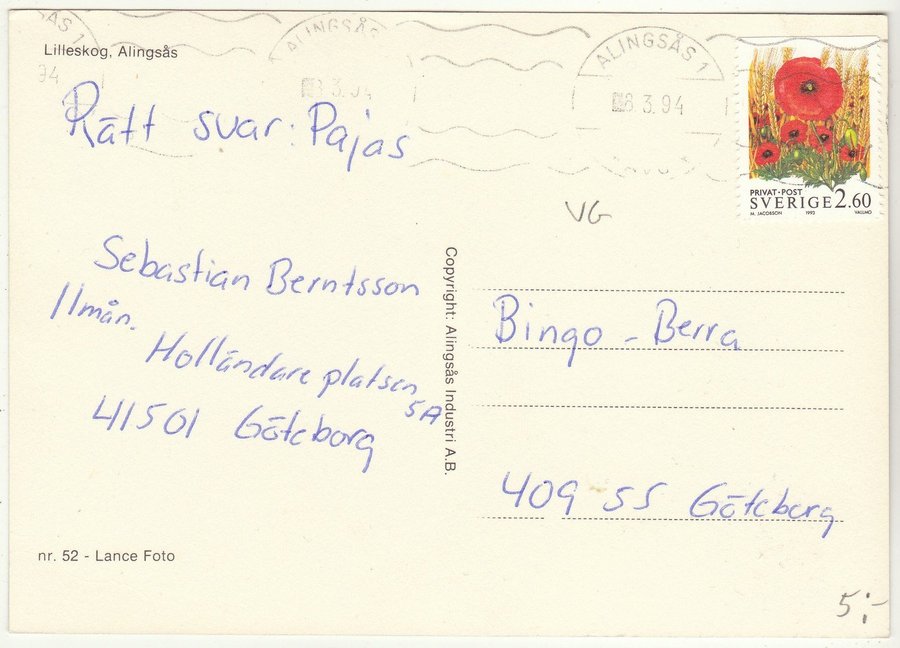 Lilleskog, Alingsås
ALINGSÅS 1
3.94
ALINGSÅS 1
8.3.94
PRIVAT·POST
SVERIGE 2.60
M. JACOBSON 1993 VALLMO
Rätt svar: Pajas
VG
Sebastian Berntsson
11mån.
Holländareplatsen
5A
41501 Göteborg
Copyright: Alingsås Industri A.B.
Bingo - Berra
409 55 Göteborg
nr. 52 - Lance Foto
5:-